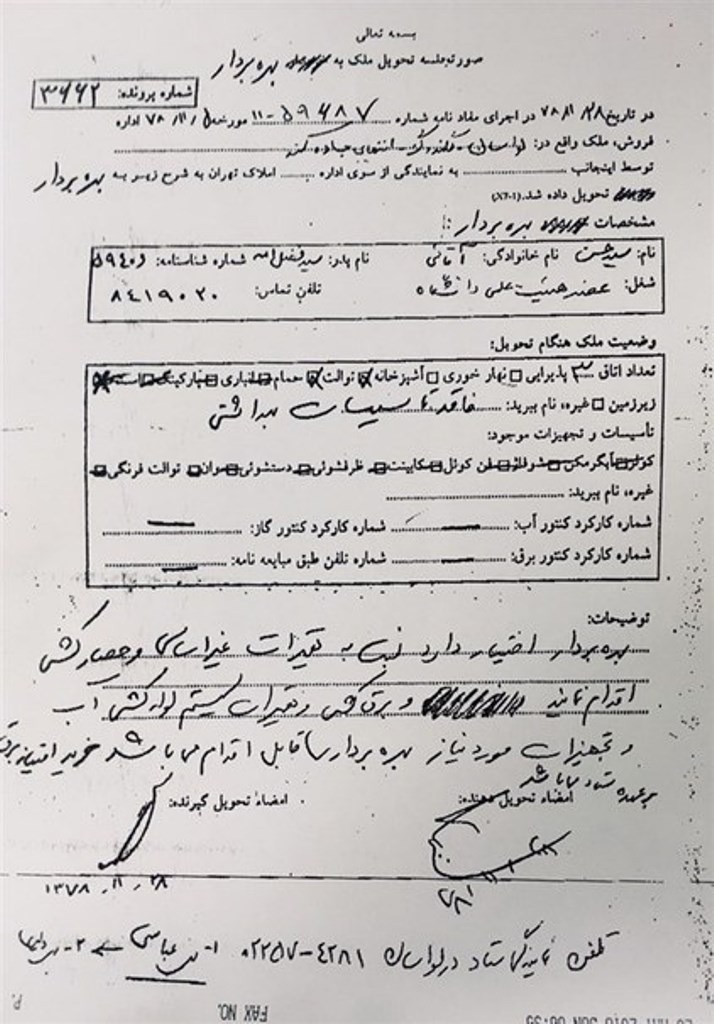 بسمه تعالی
صورتجلسه تحویل ملک به بهره بردار
شماره پرونده: ۳۶۶۲
در تاریخ ۷۸/۱۱/۲۸ در اجرای مفاد نامه شماره ۵۹۴۸۷-۱۱ مورخه ۷۸/۱۱/ اداره
فروش، ملک واقع در: لواسان
توسط اینجانب به نمایندگی از سوی اداره املاک تهران به شرح زیر به بهره بردار
تحویل داده شد. (X۳-۱)
مشخصات بهره بردار:
نام: سید حسن نام خانوادگی: آقائی نام پدر: سید فضل اله شماره شناسنامه: ۵۹۴۰۶
شغل: عضو هیئت علمی دانشگاه تلفن تماس: ۸۴۱۹۰۲۰
وضعیت ملک هنگام تحویل:
تعداد اتاق ۳ پذیرایی نهار خوری آشپزخانه توالت حمام انباری پارکینگ
زیرزمین غیره، نام ببرید: فاقد تاسیسات بهداشتی
تأسیسات و تجهیزات موجود:
کولر آبگرمکن شوفاژ فن کوئل کابینت ظرفشوئی دستشوئی وان توالت فرنگی
غیره، نام ببرید:
شماره کارکرد کنتور آب: شماره کارکرد کنتور گاز:
شماره کارکرد کنتور برق: شماره تلفن طبق مبایعه نامه:
توضیحات:
بهره بردار اختیار دارد نسبت به تغییرات غیر اساسی و حصار کشی
اقدام نماید و برق کشی و تغییرات سیستم لوله کشی آب
و تجهیزات مورد نیاز بهره بردار قابل اقدام می باشد خرید امتیاز برق
بر عهده ستاد می باشد
امضاء تحویل دهنده: امضاء تحویل گیرنده:
۱۳۷۸،۱۱،۲۸
تلفن نمایندگی ستاد در لواسان ۰۲۲۵۷-۴۲۸۱ ۱- عباسی ۲-
FAX NO.
P.